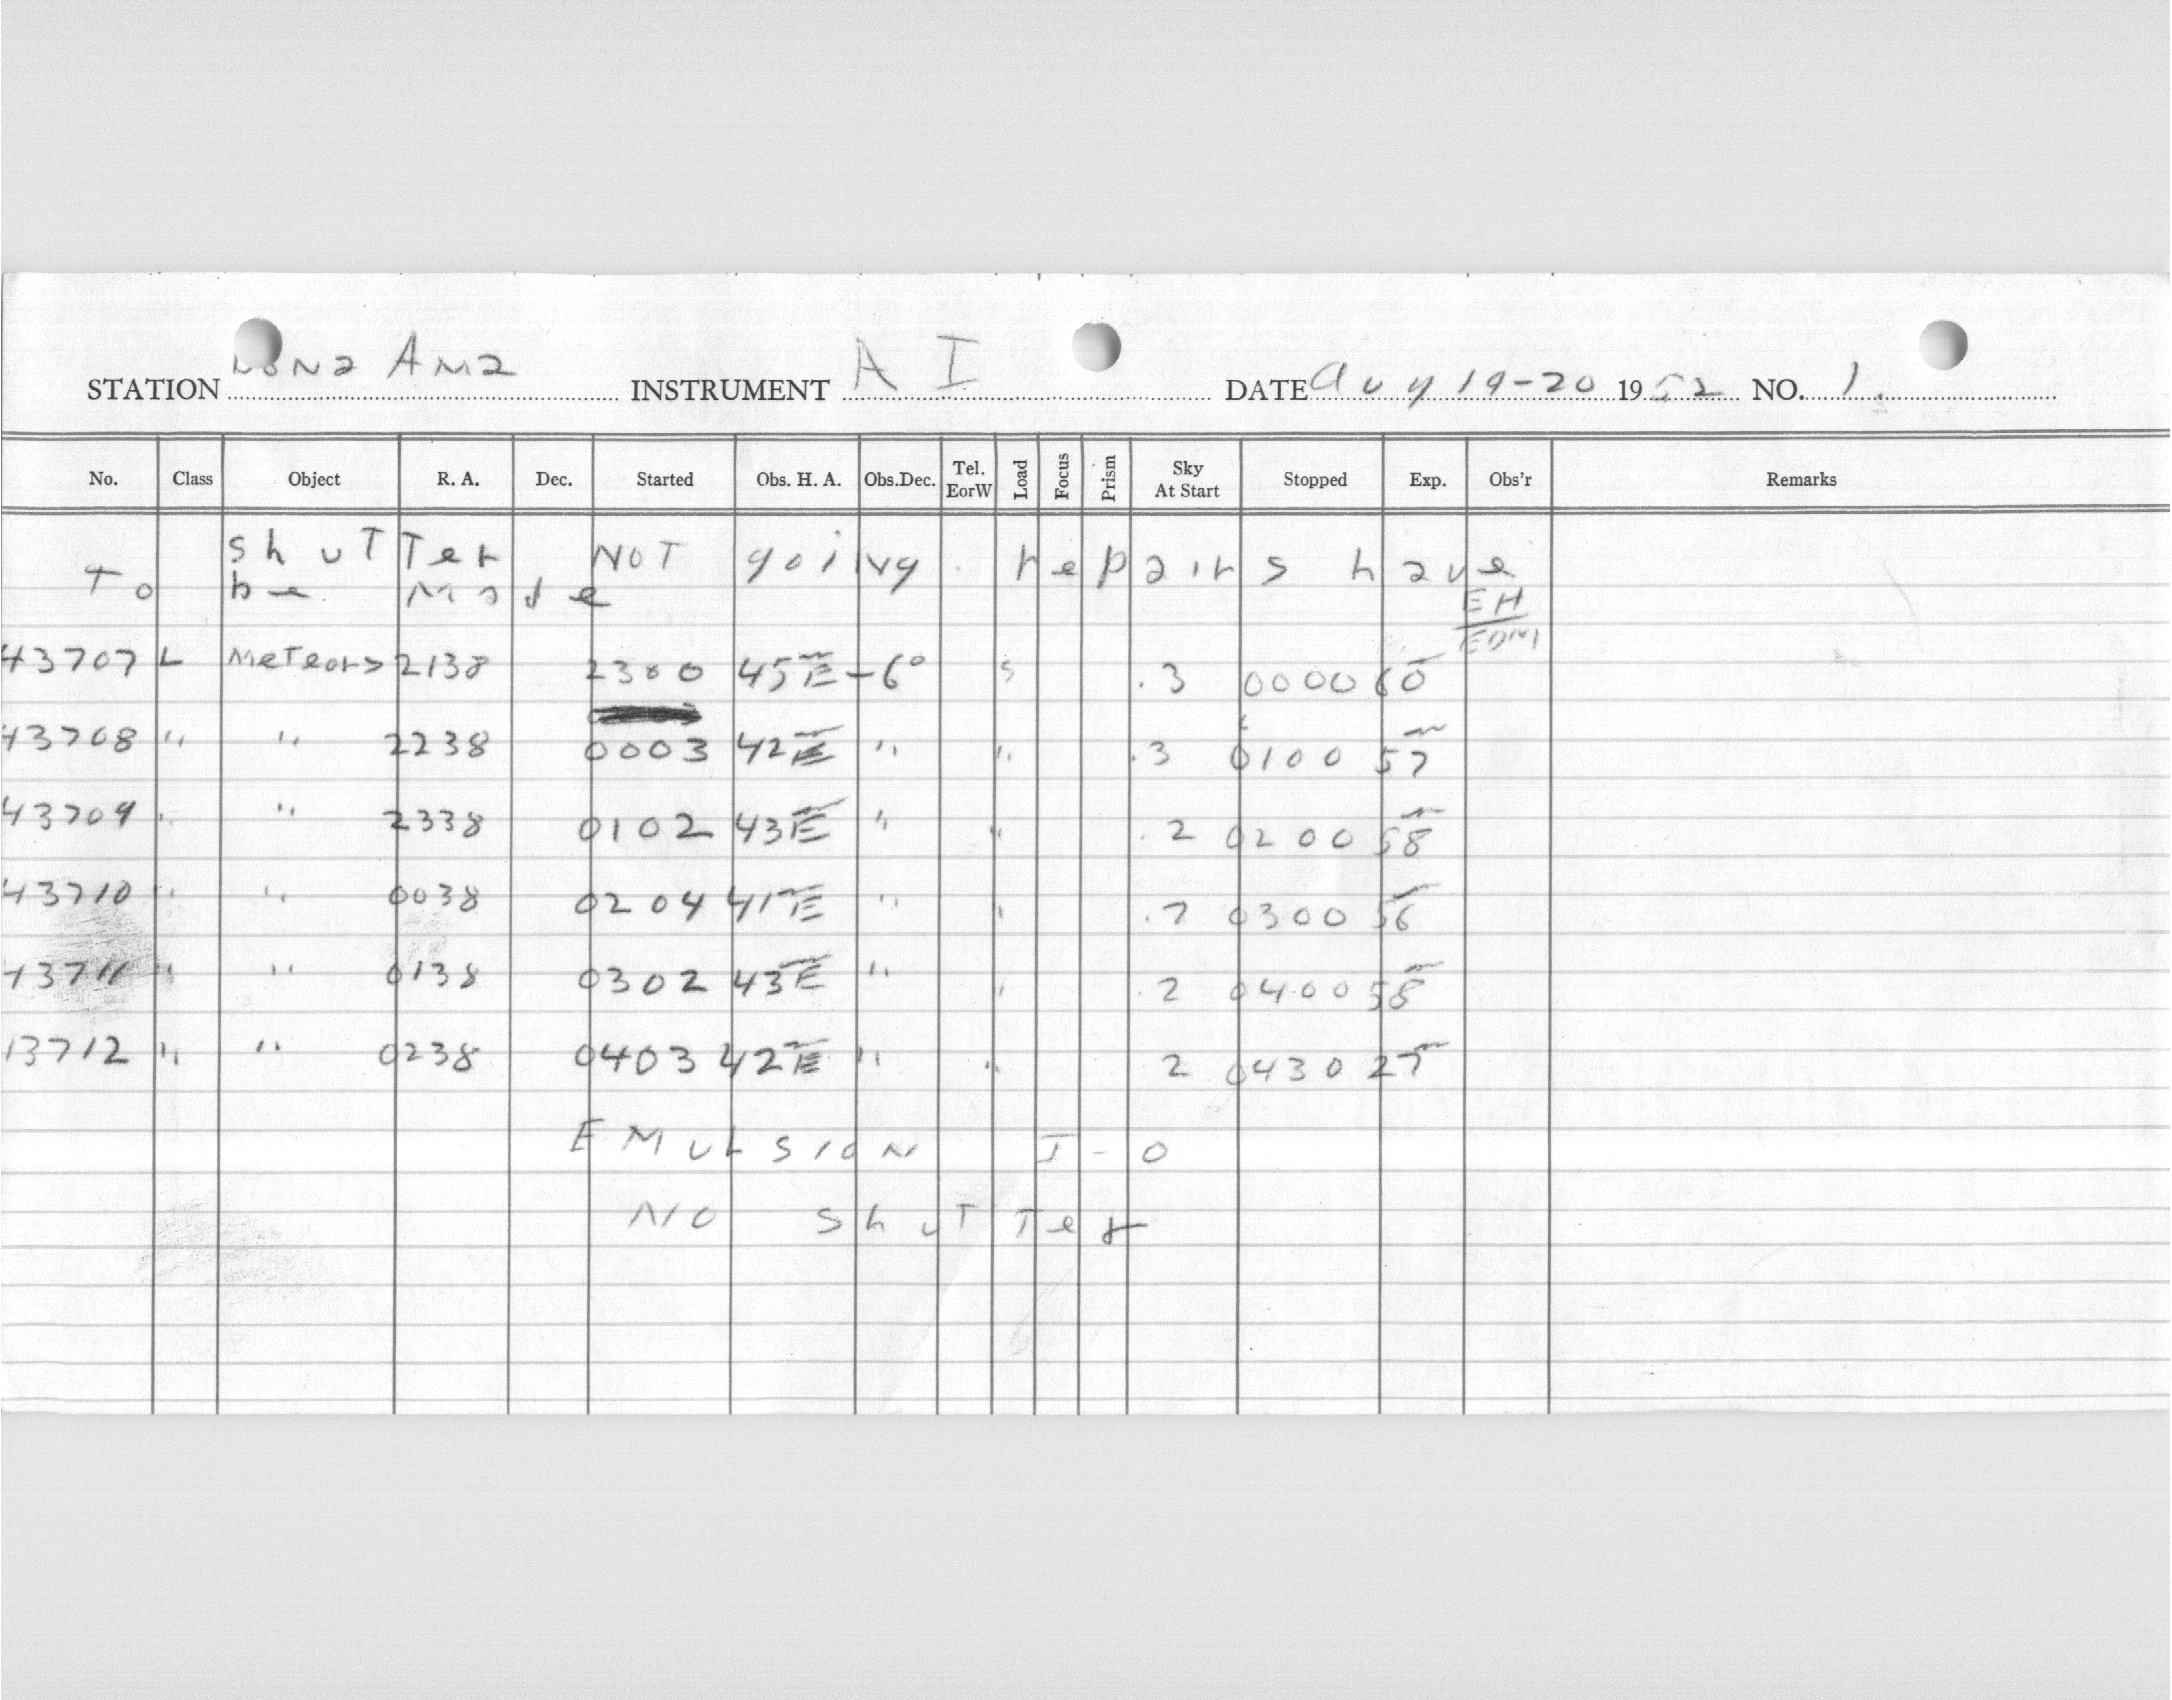 STATION Dona Ana INSTRUMENT A I DATE Aug 19-20 1952 NO. 1.
No. Class Object R. A. Dec. Started Obs. H. A. Obs.Dec. Tel. EorW Load Focus Prism Sky At Start Stopped Exp. Obs'r Remarks
shutTer NOT going. repairs have
To be Made
EH
EDM
43707 L Meteors 2138 2300 45m E -6° s .3 0000 60m
43708 " " 2238 0003 42m E " " .3 0100 57m
43709 " " 2338 0102 43m E " " .2 0200 58m
43710 " " 0038 0204 41m E " " .2 0300 56m
43711 " " 0138 0302 43m E " " .2 0400 58m
13712 " " 0238 0403 42m E " " 2 0430 27m
EMULSION I-O
NO shutTer